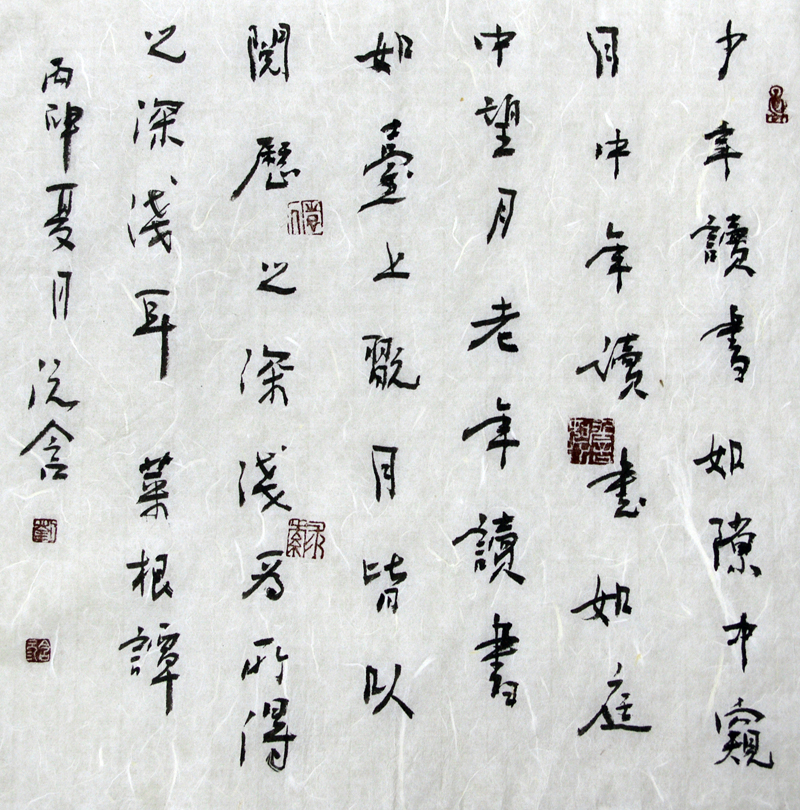 少年讀書如隙中窺
月中年讀書如庭
中望月老年讀書
如臺上翫月皆以
閱歷之深淺為所得
之深淺耳 菜根譚
丙申夏月 沅含